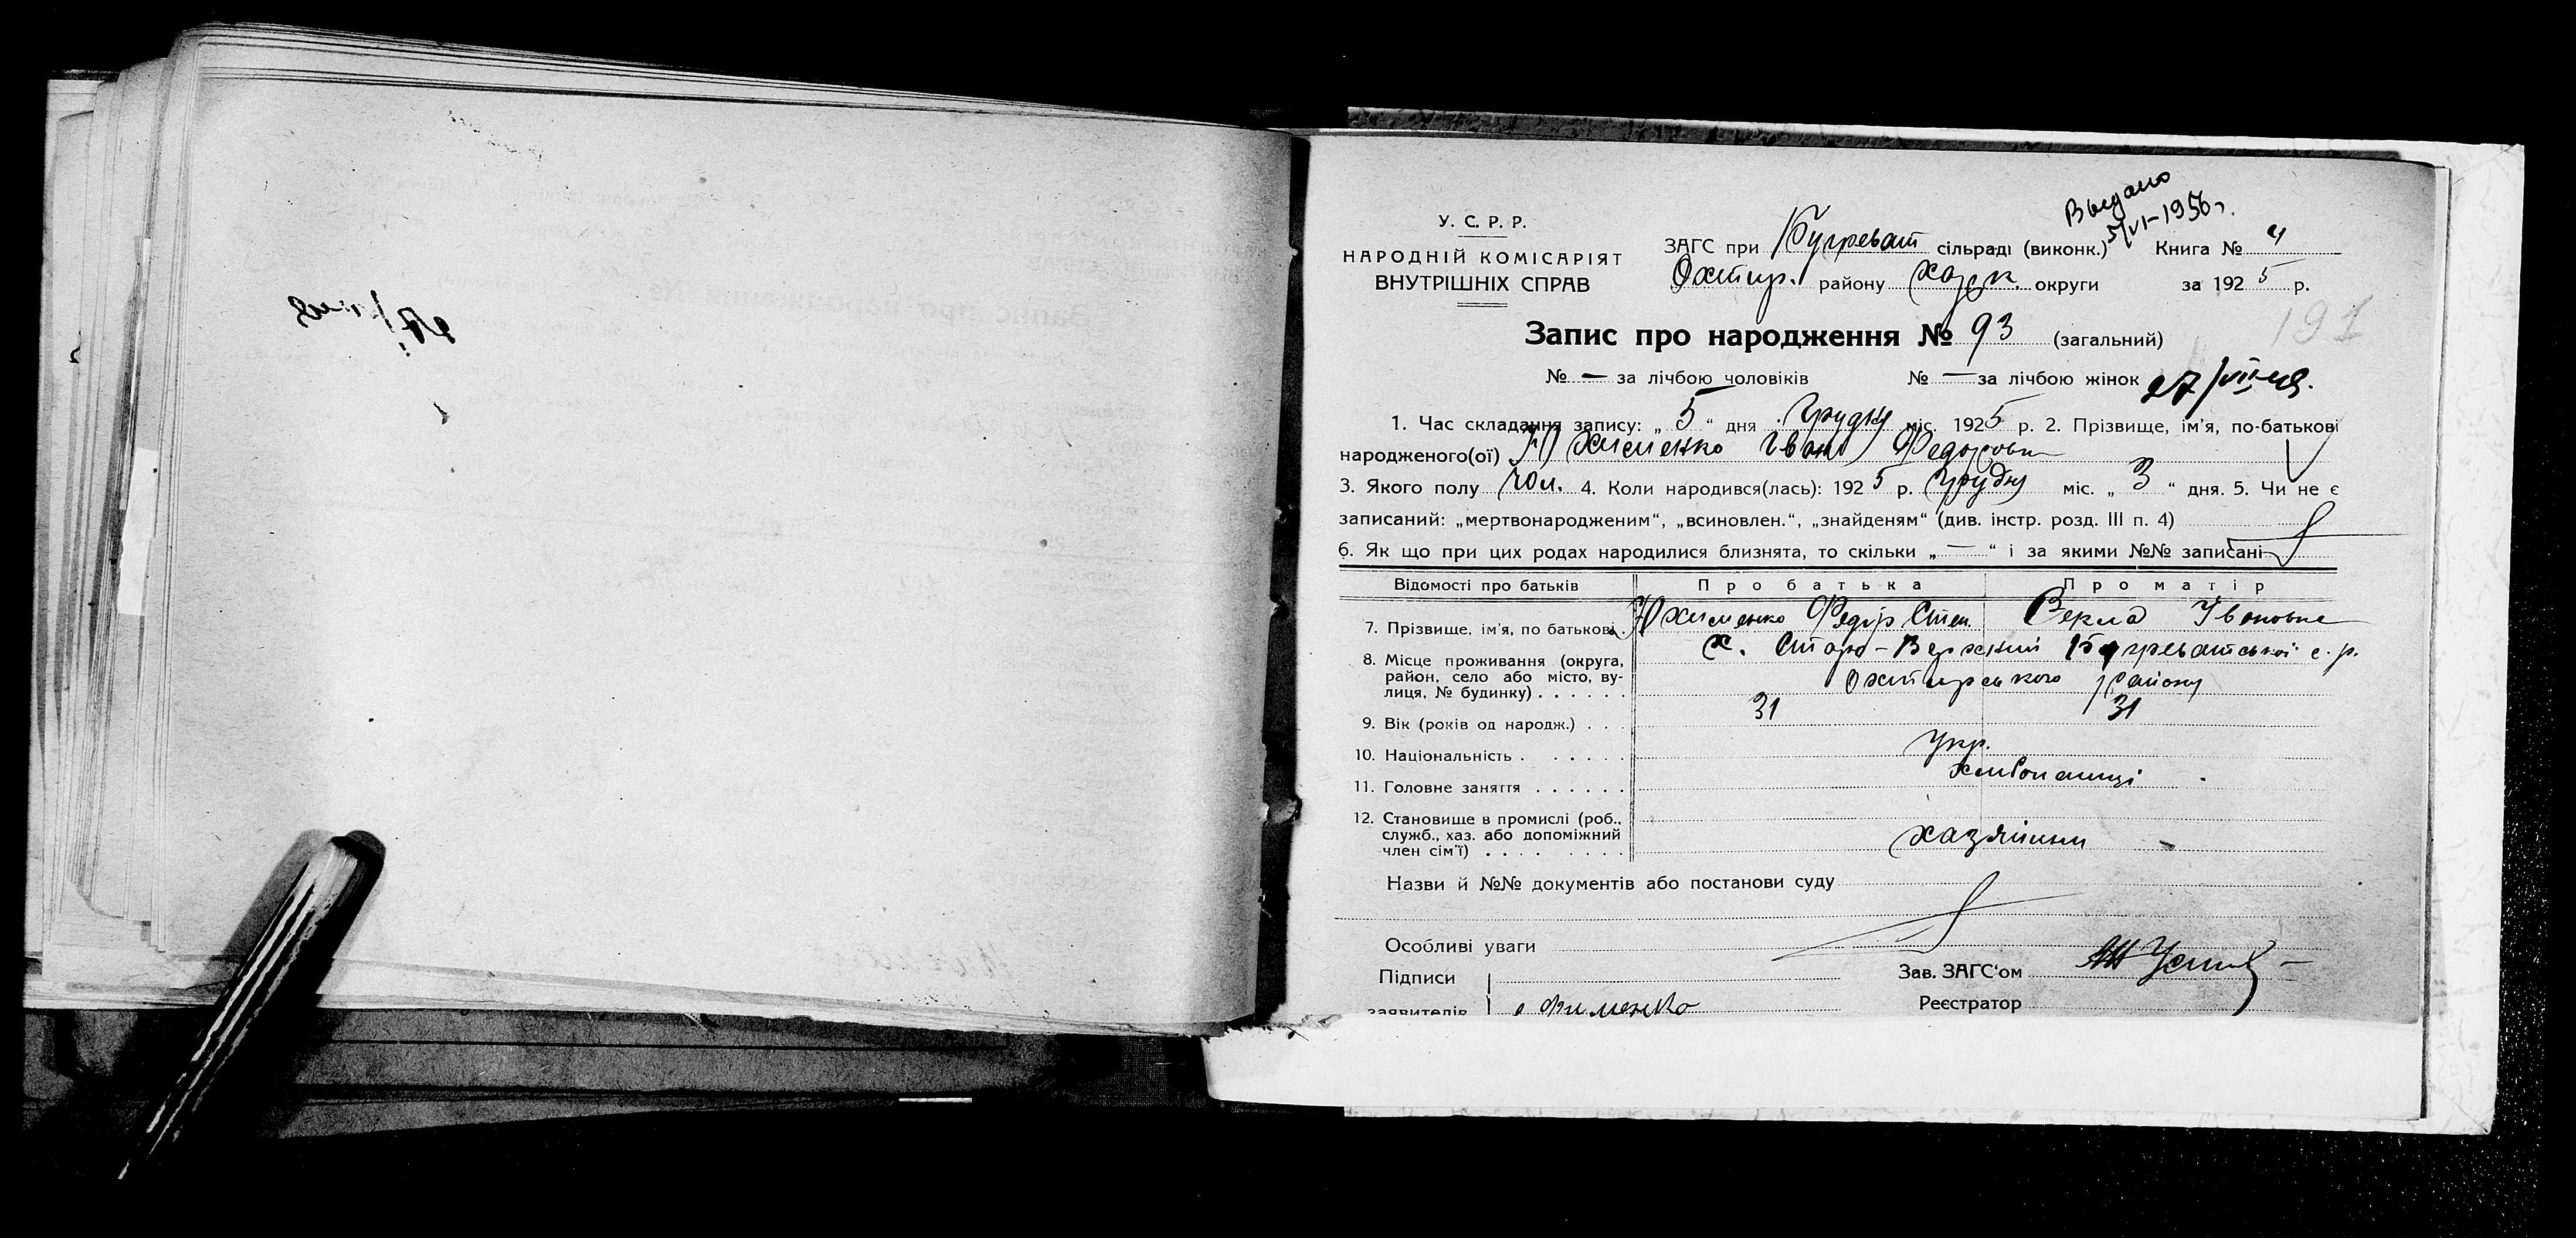 Выдано
5/VI-1956г.
У. С. Р. Р.
НАРОДНІЙ КОМІСАРІЯТ
ВНУТРІШНІХ СПРАВ
ЗАГС при Бугреват сільраді (виконк.) Книга № 4
Охтир. району Харк. округи за 1925 р.
191
Запис про народження № 93 (загальний)
№ — за лічбою чоловіків № — за лічбою жінок 27/VII-48.
1. Час складання запису: „ 5 “ дня Грудня міс. 1925 р. 2. Прізвище, ім'я, по-батькові
народженого(ої) Юхименко Іван Федорович
3. Якого полу чол. 4. Коли народився(лась): 1925 р. Грудня міс. „ 3 “ дня. 5. Чи не є
записаний: „мертвонародженим“, „всиновлен.“, „знайденям“ (див. інстр. розд. III п. 4)
6. Як що при цих родах народилися близнята, то скільки „ — “ і за якими №№ записані
Відомості про батьків Про батька Про матір
7. Прізвище, ім'я, по батькові . Юхименко Федір Степ. Векла Івановна
8. Місце проживання (округа, район, село або місто, вулиця, № будинку) . . . . . . х. Старо-Верхній Бугреватської с. р.
Охтирського району
9. Вік (років од народж.) . . . 31 31
10. Національність . . . . . . Укр.
11. Головне заняття . . . . . . хлібопашці
12. Становище в промислі (роб., служб., хаз. або допоміжний член сім'ї) . . . . . . . . хазяїни
Назви й №№ документів або постанови суду
Особливі уваги
Підписи
заявителів Юхименко
Зав. ЗАГС'ом
Реєстратор